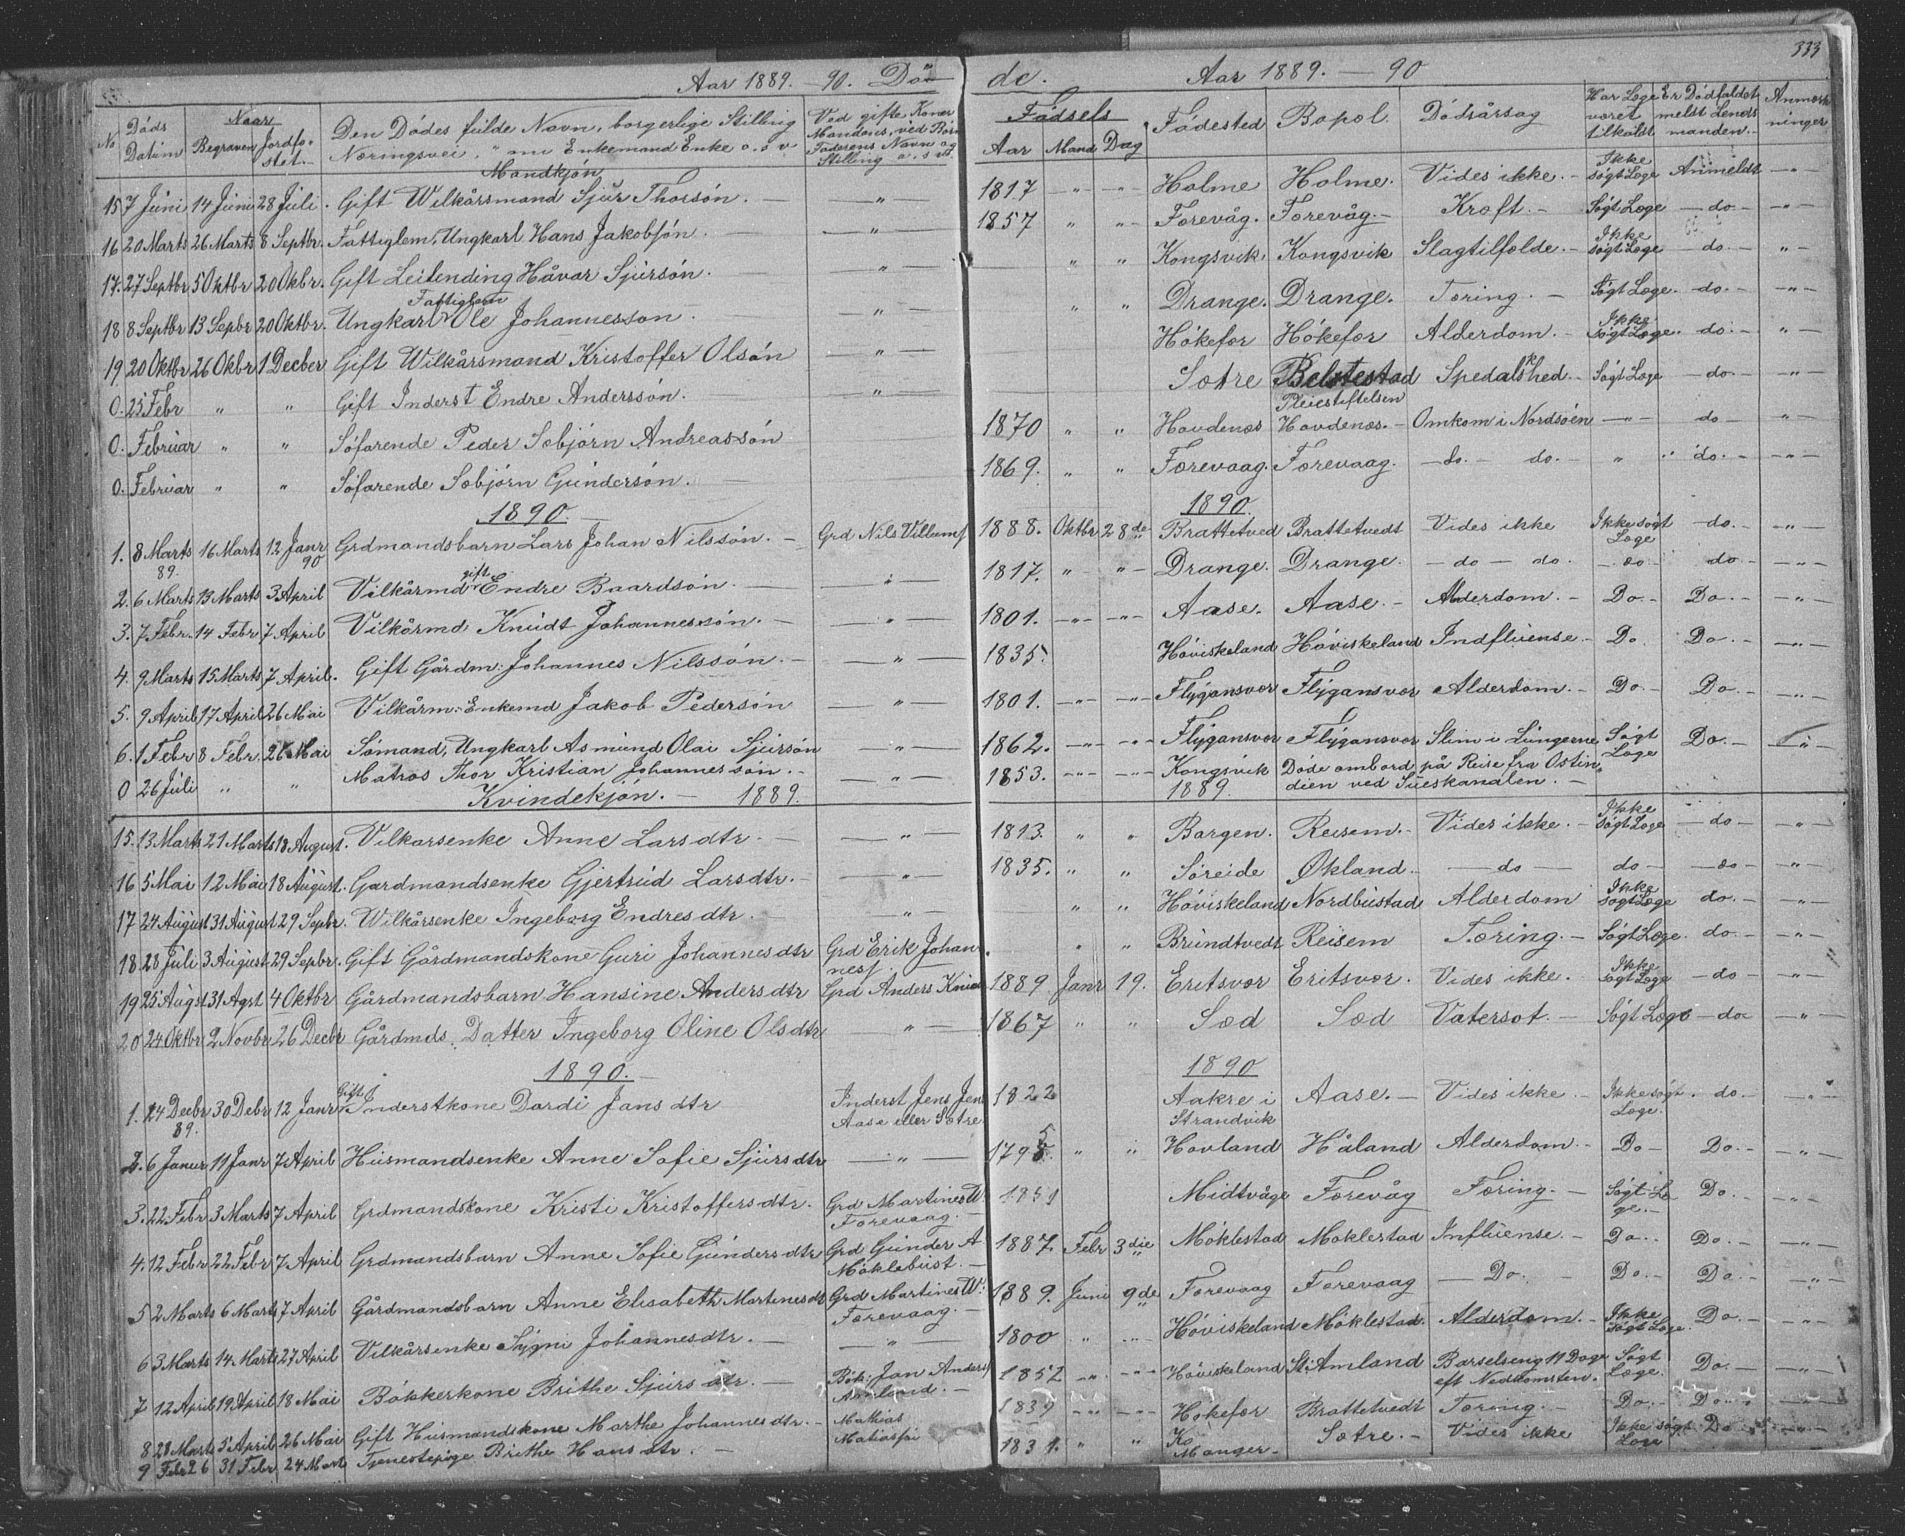 333
Aar 1889. - 90. Dö de. Aar 1889. - 90
No Döds Datum Naar Begraven Jordfostet. Den Dödes fulde Navn, borgerlige Stilling Næringsvei, om Enkemand Enke o. s. v. Ved gifte Koner Mandens, ved Börn Faderens Navn og Stilling o. s. v. Fødsels Aar Maaned Dag Fødested Bopæl Dödsårsag Har Læge været tilkaldt Er Dödfaldet meldt Lensmanden. Anmærkninger
Mandkjön
15 7 Juni 14 Juni 28 Juli. Gift Wilkårsmand Sjur Thorsön. - " - 1817 - " - - " - Holme Holme. Vides ikke. - Ikke Søgt Læge Anmeldt - " -
16 20 Marts 26 Marts 8 Septbr. Fattiglem, Ungkarl Hans Jakobsön. - " - 1857 " " Forevåg. Forevåg. - Kræft. - Søgt Læge - do - - " -
17. 27 Septbr 5 Oktbr 20 Okbr. Gift Leilending Håvar Sjursön. " " " Kongsvik Kongsvik Slagtilfælde. - Ikke søgt Læge - do - - " -
18 8 Septbr 13 Sepbr 20 Oktbr. Ungkarl Fattiglem Ole Johannesson. - " - " " Drange. Drange. Tæring. - Søgt Læge. - do. - - " -
19 20 Oktbr 26 Okbr 1 Decber Gift Wilkårsmand Kristoffer Olsön - " - Hökefor Hökefor Alderdom. - Ikke Søgt Læge. - do. - - " -
0. 25 Febr " " Gift Inderst Endre Anderssön. - " - Sætre Pleiestiftelsen Spedalskhed. - Søgt Læge - do. - - " -
0. Februar " " Söfarende Peder Sæbjörn Andreassön 1870 " " Hovdenæs Hovdenæs. - Omkom i Nordsöen - " - do - - " -
0. Februar " " Söfarende Sæbjörn Gundersön. - 1869. " " Færevaag. Forevaag. - do. - do. - " do. - - " -
1890. 1890.
1. 8 Marts 89. 16 Marts 12 Janr 90 Grdmandsbarn Lars Johan Nilssön. - Grd Nils Villumss 1888. Oktbr 28de Brattetved Brattetvedt Vides ikke Ikke søgt Læge - do. - - " -
2. 6 Marts 13 Marts 3 April Vilkårmd gift Endre Baardsön. - " - 1817. " " - Drange. Drange. - do - do. - do - do. - - " -
3. 7 Febr. 14 Febr 7 April Vilkårmd Knudt Johannessön. - " - 1801. - " - - " - Aase. Aase. - Alderdom. - Do - Do. - - " -
4. 9 Marts 15 Marts 7 April. Gift Gårdm: Johannes Nilssön. - " - 1835. Höviskeland Höviskeland Indfluense. - Do Do. - - " -
5. 9 April 17 April 26 Mai Vilkårm: Enkemd Jakob Pedersön - " - 1801. - " - - " - Flygansvær Flygansvær Alderdom. - Do. - Do. - - " -
6. 1 Febr 8 Febr 26 Mai Sömand, Ungkarl Asmund Olai Sjursön - " - 1862. - " - - " - Flygansvor Flygansvor Slim i Lungerne Søgt Læge Do. - - " -
0 26 Juli " " Matros Thor Kristian Johannessön. - " - 1853. - " - - " - Kongsvik Döde ombord på Reise fra Ostindien ved Sueskanalen. -
Kvindekjön. - 1889. 1889.
15. 13 Marts 21 Marts 18 August. Vilkarsenke Anne Larsdtr - " - 1813. " " Bargen. Reisem. - Vides ikke. - Ikke søgt Læge - do - - " -
16 5 Mai 12 Mai 18 August. Gardmandsenke Gjertrud Larsdtr. - " - 1835. " " Söreide Økland. - do - do - do - - " -
17 24 August 31 August 29 Sepbr. Wilkårsenke Ingeborg Endresdtr. - " - " " Höviskeland Nordbustad Alderdom Ikke søgt Læge do. - - " -
18. 28 Juli 3 August 29 Sepbr. Gift Gårdmandskone Guri Johannesdtr Grd Erik Johanness " " Brundtvedt Reisem Tæring. - Søgt Læge. - do. - - " -
19 25 Augst 31 Agst 4 Oktbr Gårdmandsbarn Hansine Andersdtr Grd Anders Knud 1889 Janr 19. Eritsvor Eritsvor. Vides ikke. Ikke søgt Læge - do - - " -
20 24 Oktbr 2 Novbr 26 Decbr Gårdmds. Datter Ingeborg Oline Olsdtr " - 1867 " " Sæd Sæd Vatersot. - Søgt Læge - do - - " -
1890. 1890
1. 24 Decbr 89. 30 Debr 12 Janr Gift Inderstkone Dordi Jansdtr Inderst Jens Jen Aase eller Sætre 1822 Aakre i Strandvik Aase. - Vides ikke. - Ikke søgt Læge. - do. - - " -
2. 6 Janur 11 Janr 7 April Husmandsenke Anne Sofie Sjursdtr - " - 1795 " " Hovland Håland Alderdom. - Do - Do. - - " -
3. 22 Febr 3 Marts 7 April Grdmandskone Kristi Kristoffersdtr. Grd Martines W. Forevaag. - 1851 Midtvåge Forevåg Tæring. - Søgt Læge. - Do. - - " -
4. 12 Febr 22 Febr 7 April Grdmandsbarn Anne Sofie Gundersdtr Grd Gunder A Möklebust. - 1887. Febr 3die Möklestad Möklestad Influense. - Do. - Do. - - " -
5 2 Marts 6 Marts 7 April Gårdmandsbarn Anne Elisabeth Martinesdt Grd Martines W: Forevaag. - 1889. Juni 9de Forevaag Forevaag - Do. - Do. - Do. - - " -
6 3 Marts 14 Marts 27 April Vilkårsenke Sygni Johannesdtr. - " 1800 " - " - Höviskeland Möklestad. Alderdom. - Ikke Søgt Læge. Do. - - " -
7 12 April 19 April 18 Mai Bökkerkone Brithe Sjursdtr. - Bök: Jan Anderss Amland. - 1852 - " - - " - Höviskeland St: Amland Barselseng 11 Dage eft Nedkomsten. Søgt Læge. Do. - - " -
8 28 Marts 5 April 26 Mai Gift Husmandskone Marthe Johannesdtr. - Mathias Matiassen 1839 - " - - " - Hökefor Brattetvedt Tæring. - Do. - Do. - - " -
9 Febr 26 31 Febr 24 Mart Tjenestepige Brithe Hansdtr. - 1831. " " Manger - Sætre. - Vides ikke Ikke søgt Læge Do - " -